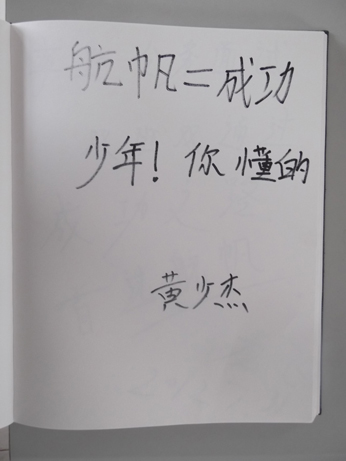 航帆=成功
少年！你懂的
黄少杰